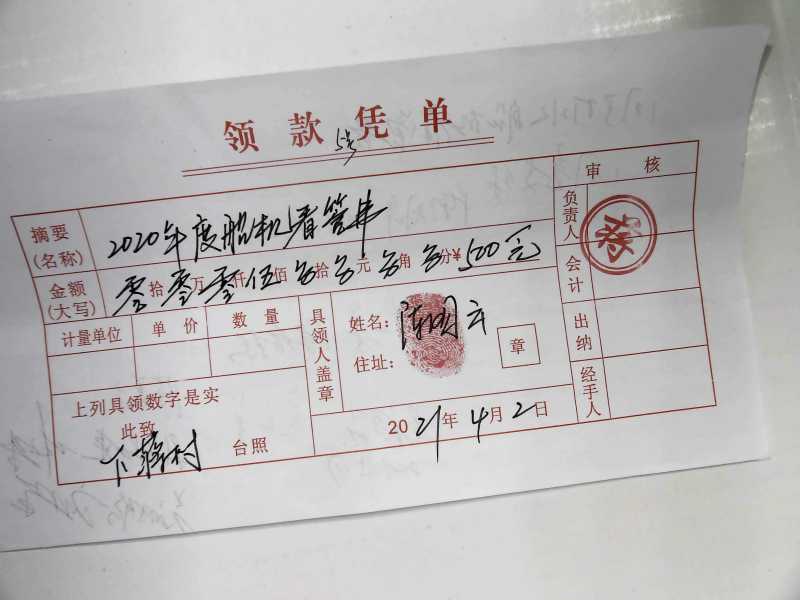 领款凭单
5号
审核
摘要(名称) 2020年度船机看管费
负责人
金额(大写) 零拾零万零仟伍佰零拾零元零角零分¥500元
会计
计量单位 单价 数量
具领人盖章
姓名:
住址:
章
出纳
上列具领数字是实
此致
下蒋村 台照
2021年4月2日
经手人